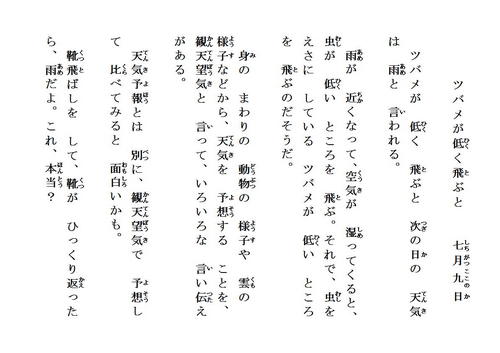 ツバメが低く飛ぶと　七月九日
ツバメが 低く 飛ぶと 次の日の 天気
は 雨と 言われる。
雨が 近くなって、空気が 湿ってくると、
虫が 低い ところを 飛ぶ。それで、虫を
えさに している ツバメが 低い ところ
を 飛ぶのだそうだ。
身の まわりの 動物の 様子や 雲の
様子などから、天気を 予想する ことを、
観天望気と 言って、いろいろな 言い伝え
がある。
天気予報とは 別に、観天望気で 予想し
て 比べてみると 面白いかも。
靴飛ばしを して、靴が ひっくり返った
ら、雨だよ。これ、本当？